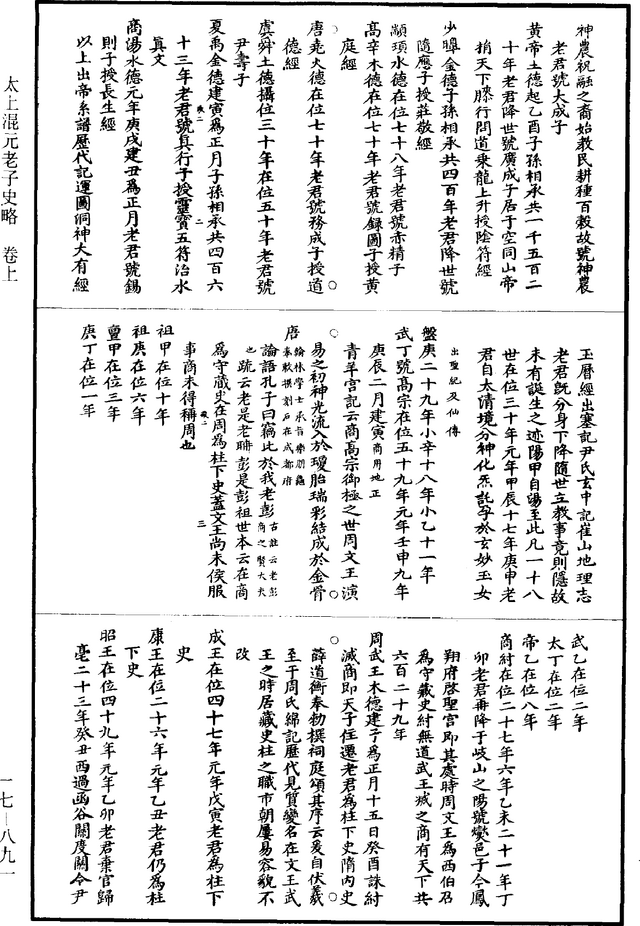 神農祝融之裔始教民耕種百穀故號神農
老君號大成子
黃帝土德起乙酉子孫相承共一千五百二
十年老君降世號廣成子居于空同山帝
捎天下膝行問道乘龍上升授陰符經
少暤金德子孫相承共四百年老君降世號
隨應子授莊敬經
顓頊水德在位七十八年老君號赤精子
高辛木德在位七十年老君號録圖子授黃
庭經
唐堯火德在位七十年老君號務成子授道
德經
虞舜土德攝位三十年在位五十年老君號
尹壽子
夏禹金德建寅爲正月子孫相承共四百六
十三年老君號真行子授靈寶五符治水
真文
商湯水德元年庚戌建丑爲正月老君號錫
則子授長生經
以上出帝系譜歷代記運圖洞神大有經
玉曆經出塞記尹氏玄中記崔山地理志
老君既分身下降隨世立教事竟則隱故
未有誕生之迹陽甲自湯至此凡一十八
世在位三十年元年甲辰十七年庚申老
君自太清境分神化炁託孕於玄妙玉女
出聖紀及仙傳
盤庚二十九年小辛十八年小乙十一年
武丁號高宗在位五十九年元年壬申九年
庚辰二月建寅商用地正
青羊宮記云商高宗御極之世周文王演
易之初神光流入於瓊胎瑞彩結成於金骨
唐翰林學士承旨樂朋龜奉敕撰刻石在成都府
論語孔子曰竊比於我老彭古註云老彭商之賢大夫
也疏云老是老聃彭是彭祖世本云在商
爲守藏史在周爲柱下史蓋文王尚未侯服
事商未得稱周也
祖甲在位十年
祖庚在位六年
亶甲在位三年
庚丁在位一年
武乙在位二年
太丁在位二年
帝乙在位八年
商紂在位二十七年六年乙未二十一年丁
卯老君再降于岐山之陽號燮邑子今鳳
翔府啓聖宮即其處時周文王為西伯召
爲守藏史紂無道武王滅之商有天下共
六百二十九年
周武王木德建子爲正月十五日癸酉誅紂
滅商即天子位遷老君爲柱下史隋內史
薛道衡奉勑撰祠庭頌其序云爰自伏羲
至于周氏綿記歷代見質變名在文王武
王之時居藏史柱之職市朝屢易容貌不
改
成王在位四十七年元年戊寅老君爲柱下
史
康王在位二十六年元年乙丑老君仍為柱
下史
昭王在位四十九年元年乙卯老君棄官歸
亳二十三年癸丑西過函谷關度關令尹
太上混元老子史略 卷上
一七－八九一